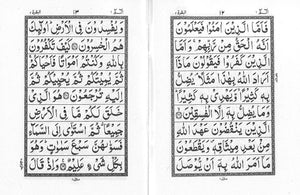 البقرة ٢
١٢
الٓمّٓ ١
فَاَمَّا الَّذِيْنَ اٰمَنُوْا فَيَعْلَمُوْنَ
اَنَّهُ الْحَقُّ مِنْ رَّبِّهِمْ ۚ وَاَمَّا
الَّذِيْنَ كَفَرُوْا فَيَقُوْلُوْنَ مَاذَآ
اَرَادَ اللّٰهُ بِهٰذَا مَثَلًا ۘ يُضِلُّ
بِهٖ كَثِيْرًا ۙ وَّيَهْدِيْ بِهٖ كَثِيْرًا ؕ
وَمَا يُضِلُّ بِهٖٓ اِلَّا الْفٰسِقِيْنَ ۙ
الَّذِيْنَ يَنْقُضُوْنَ عَهْدَ اللّٰهِ
مِنْۢ بَعْدِ مِيْثَاقِهٖ ۪ وَيَقْطَعُوْنَ
مَآ اَمَرَ اللّٰهُ بِهٖٓ اَنْ يُّوْصَلَ
البقرة ٢
١٣
الٓمّٓ ١
وَيُفْسِدُوْنَ فِي الْاَرْضِ ؕ اُولٰٓئِكَ
هُمُ الْخٰسِرُوْنَ ۝ كَيْفَ تَكْفُرُوْنَ
بِاللّٰهِ وَكُنْتُمْ اَمْوَاتًا فَاَحْيَاكُمْ ۚ
ثُمَّ يُمِيْتُكُمْ ثُمَّ يُحْيِيْكُمْ ثُمَّ
اِلَيْهِ تُرْجَعُوْنَ ۝ هُوَ الَّذِيْ
خَلَقَ لَكُمْ مَّا فِي الْاَرْضِ
جَمِيْعًا ۗ ثُمَّ اسْتَوٰٓى اِلَى السَّمَآءِ
فَسَوّٰىهُنَّ سَبْعَ سَمٰوٰتٍ ؕ وَهُوَ
بِكُلِّ شَيْءٍ عَلِيْمٌ ۝ وَاِذْ قَالَ